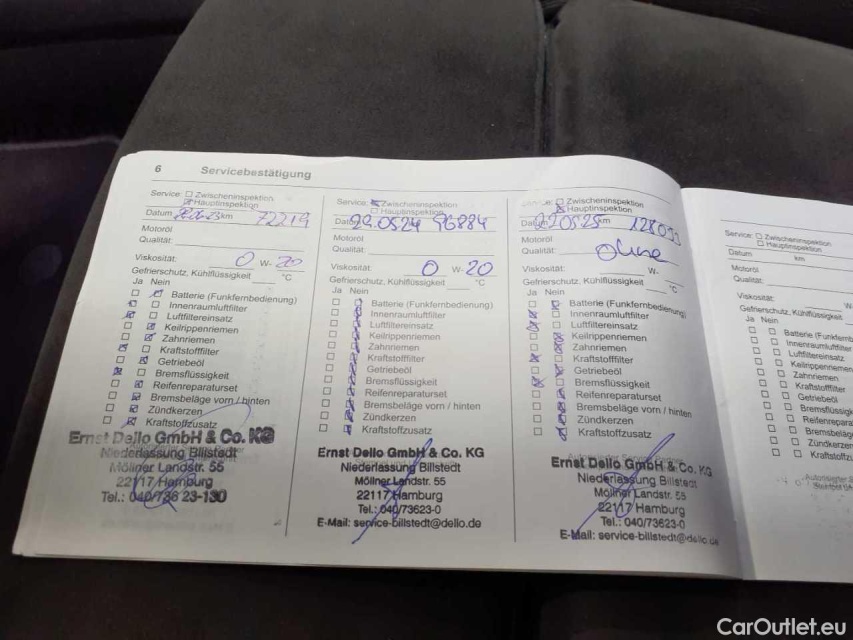 6 Servicebestätigung
Service: Zwischeninspektion
Hauptinspektion
Datum km 72219
Motoröl
Qualität:
Viskosität: 0 W- 20
Gefrierschutz, Kühlflüssigkeit °C
Ja Nein
Batterie (Funkfernbedienung)
Innenraumluftfilter
Luftfiltereinsatz
Keilrippenriemen
Zahnriemen
Kraftstofffilter
Getriebeöl
Bremsflüssigkeit
Reifenreparaturset
Bremsbeläge vorn / hinten
Zündkerzen
Kraftstoffzusatz
Ernst Dello GmbH & Co. KG
Niederlassung Billstedt
Möllner Landstr. 55
22117 Hamburg
Tel.: 040/736 23-130
Service: Zwischeninspektion
Hauptinspektion
22.0524 96884
Motoröl
Qualität:
Viskosität: 0 W- 20
Gefrierschutz, Kühlflüssigkeit °C
Ja Nein
Batterie (Funkfernbedienung)
Innenraumluftfilter
Luftfiltereinsatz
Keilrippenriemen
Zahnriemen
Kraftstofffilter
Getriebeöl
Bremsflüssigkeit
Reifenreparaturset
Bremsbeläge vorn / hinten
Zündkerzen
Kraftstoffzusatz
Ernst Dello GmbH & Co. KG
Niederlassung Billstedt
Möllner Landstr. 55
22117 Hamburg
Tel.: 040/73623-0
E-Mail: service-billstedt@dello.de
Zwischeninspektion
Hauptinspektion
Motoröl
Qualität: Ohne
Viskosität: W-
Gefrierschutz, Kühlflüssigkeit °C
Ja Nein
Batterie (Funkfernbedienung)
Innenraumluftfilter
Luftfiltereinsatz
Keilrippenriemen
Zahnriemen
Kraftstofffilter
Getriebeöl
Bremsflüssigkeit
Reifenreparaturset
Bremsbeläge vorn / hinten
Zündkerzen
Kraftstoffzusatz
Ernst Dello GmbH & Co. KG
Niederlassung Billstedt
Möllner Landstr. 55
22117 Hamburg
Tel.: 040/73623-0
E-Mail: service-billstedt@dello.de
Service: Zwischeninspektion
Hauptinspektion
Datum km
Motoröl
Qualität:
Viskosität: W
Gefrierschutz, Kühlflüssigkeit
Ja Nein
Batterie (Funkfernb
Innenraumluftfilter
Luftfiltereinsatz
Keilrippenriemen
Zahnriemen
Kraftstofffilter
Getriebeöl
Bremsflüssigk
Reifenrepara
Bremsbeläg
Zündkerze
Kraftstoffz
CarOutlet.eu